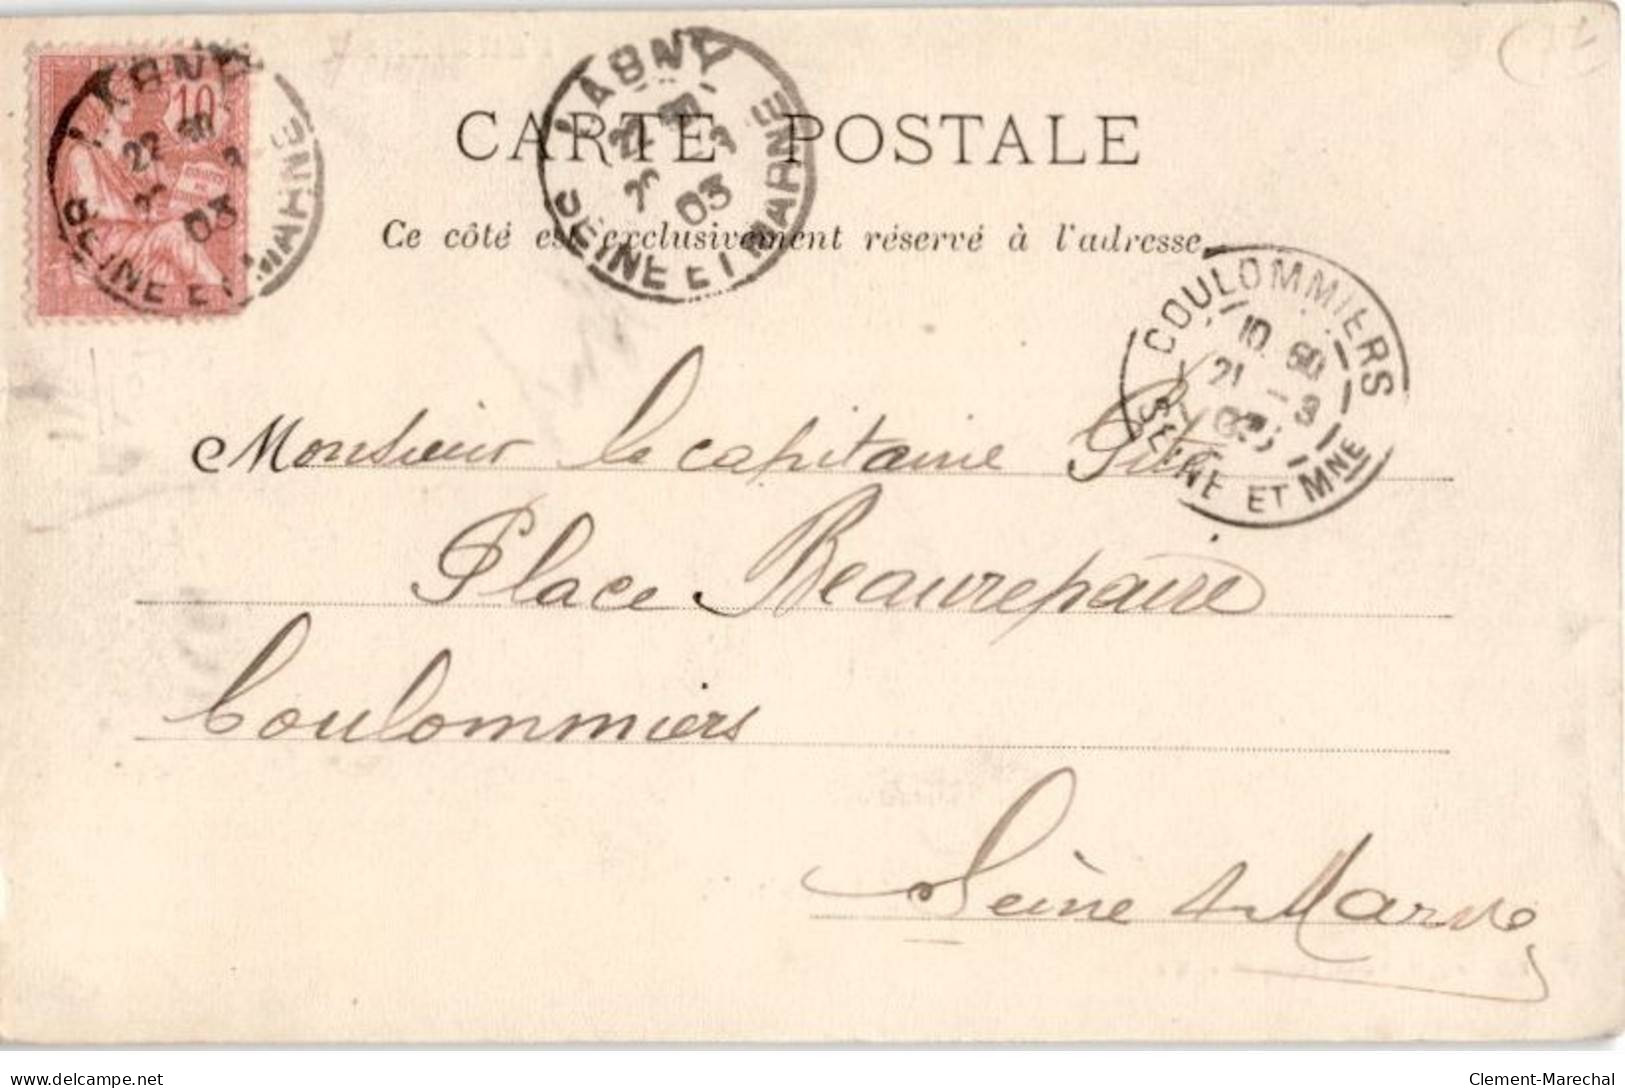 10
LAGNY
22 30
03
SEINE ET MARNE
LAGNY
22 30
20 3
03
SEINE ET MARNE
CARTE POSTALE
Ce côté est exclusivement réservé à l'adresse.
COULOMMIERS
10 50
21 3
03
SEINE ET MNE
Monsieur le capitaine
Place Beaurepaire
Coulommiers
Seine & Marne
delcampe.net
Clement-Marechal